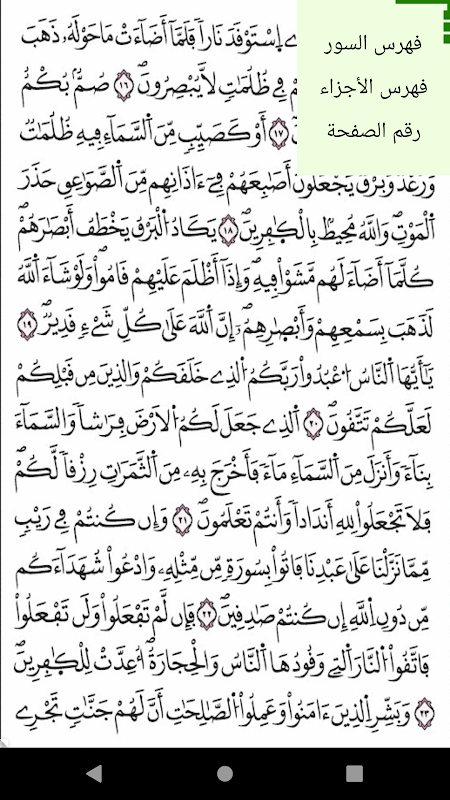 فهرس السور
فهرس الأجزاء
رقم الصفحة
اِ۪سْتَوْقَدَ نَاراٗ فَلَمَّآ أَضَآءَتْ مَا حَوْلَهُۥ ذَهَبَ
فِے ظُلُمَٰتٖ لَّا يُبْصِرُونَۖ ١٦ صُمُّۢ بُكْمٌ
١٧ أَوْ كَصَيِّبٖ مِّنَ اَ۬لسَّمَآءِ فِيهِ ظُلُمَٰتٞ
وَرَعْدٞ وَبَرْقٞ يَجْعَلُونَ أَصَٰبِعَهُمْ فِےٓ ءَاذَانِهِم مِّنَ اَ۬لصَّوَٰعِقِ حَذَرَ
اَ۬لْمَوْتِۖ وَاللَّهُ مُحِيطُۢ بِالْكٰ۪فِرِينَۖ ١٨ يَكَادُ اُ۬لْبَرْقُ يَخْطَفُ أَبْصَٰرَهُمْۖ
كُلَّمَآ أَضَآءَ لَهُم مَّشَوْاْ فِيهِۖ وَإِذَآ أَظْلَمَ عَلَيْهِمْ قَامُواْۖ وَلَوْ شَآءَ اَ۬للَّهُ
لَذَهَبَ بِسَمْعِهِمْ وَأَبْصٰ۪رِهِمُۥٓۖ إِنَّ اَ۬للَّهَ عَلَىٰ كُلِّ شَےْءٖ قَدِيرٞۖ ١٩
يَٰٓأَيُّهَا اَ۬لنَّاسُ اُ۟عْبُدُواْ رَبَّكُمُ اُ۬لذِے خَلَقَكُمْ وَالذِينَ مِن قَبْلِكُمْ
لَعَلَّكُمْ تَتَّقُونَۖ ٢٠ اَ۬لذِے جَعَلَ لَكُمُ اُ۬لَارْضَ فِرَٰشاٗ وَالسَّمَآءَ
بِنَآءٗ وَأَنزَلَ مِنَ اَ۬لسَّمَآءِ مَآءٗ فَأَخْرَجَ بِهِۦ مِنَ اَ۬لثَّمَرَٰتِ رِزْقاٗ لَّكُمْۖ
فَلَا تَجْعَلُواْ لِلهِ أَندَاداٗ وَأَنتُمْ تَعْلَمُونَۖ ٢١ وَإِن كُنتُمْ فِے رَيْبٖ
مِّمَّا نَزَّلْنَا عَلَىٰ عَبْدِنَا فَاتُواْ بِسُورَةٖ مِّن مِّثْلِهِۦ وَادْعُواْ شُهَدَآءَكُم
مِّن دُونِ اِ۬للَّهِ إِن كُنتُمْ صَٰدِقِينَۖ ٢٢ فَإِن لَّمْ تَفْعَلُواْ وَلَن تَفْعَلُواْ
فَاتَّقُواْ اُ۬لنَّارَ اَ۬لتِے وَقُودُهَا اَ۬لنَّاسُ وَالْحِجَارَةُۖ أُعِدَّتْ لِلْكٰ۪فِرِينَۖ
٢٣ وَبَشِّرِ اِ۬لذِينَ ءَامَنُواْ وَعَمِلُواْ اُ۬لصَّٰلِحَٰتِ أَنَّ لَهُمْ جَنَّٰتٖ تَجْرِے